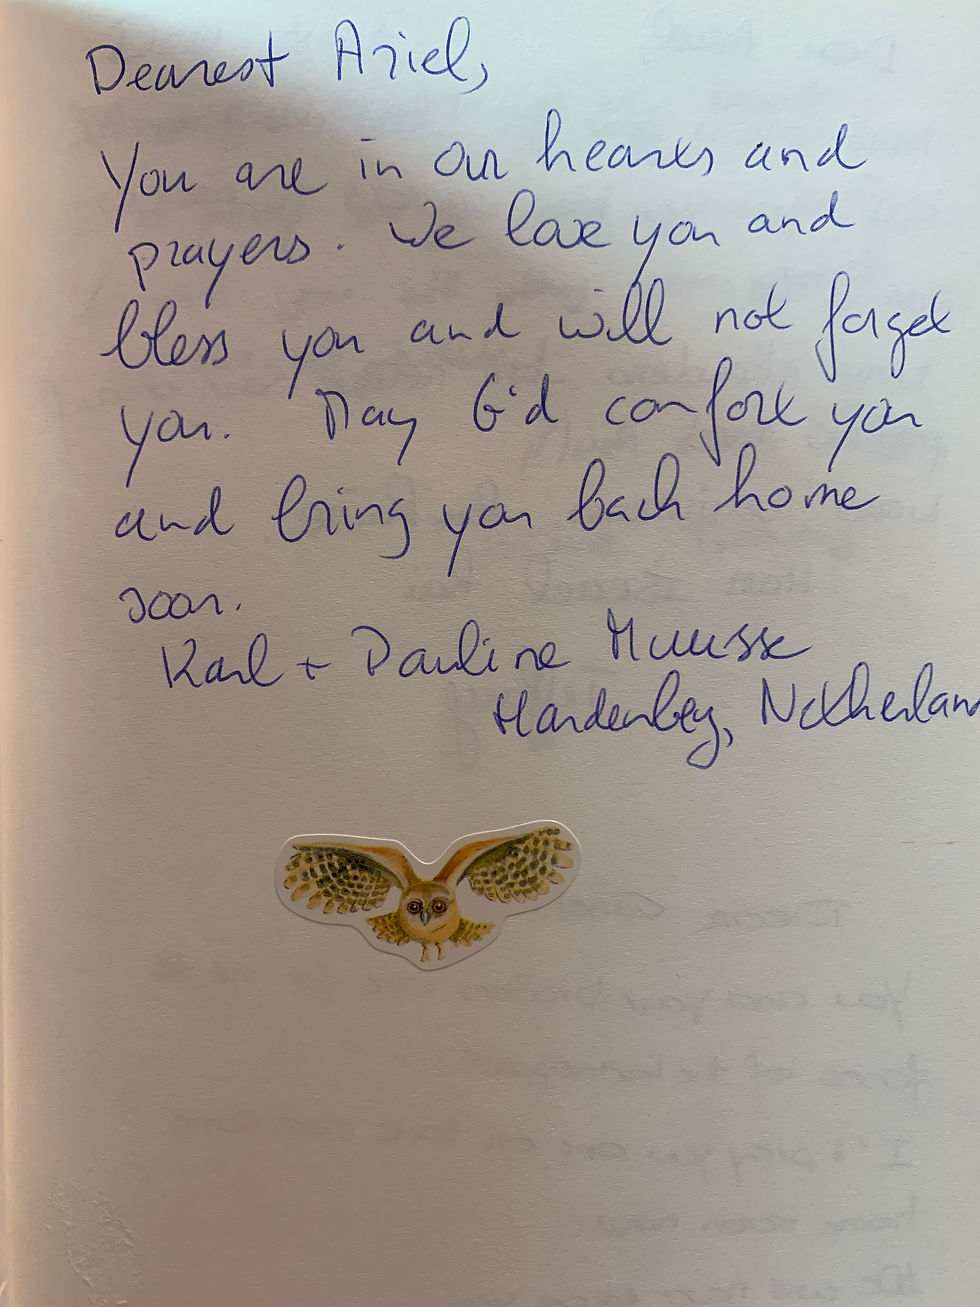 Dearest Ariel,
You are in our hearts and
prayers. We love you and
bless you and will not forget
you. May G'd comfort you
and bring you back home
soon.
Karl + Pauline Muusse
Hardenberg, Netherland